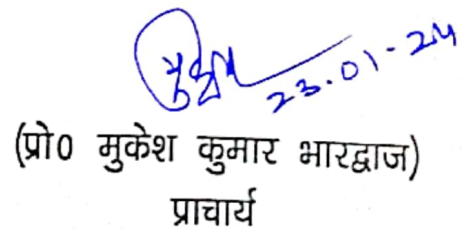 23.01-24
(प्रो0 मुकेश कुमार भारद्वाज)
प्राचार्य